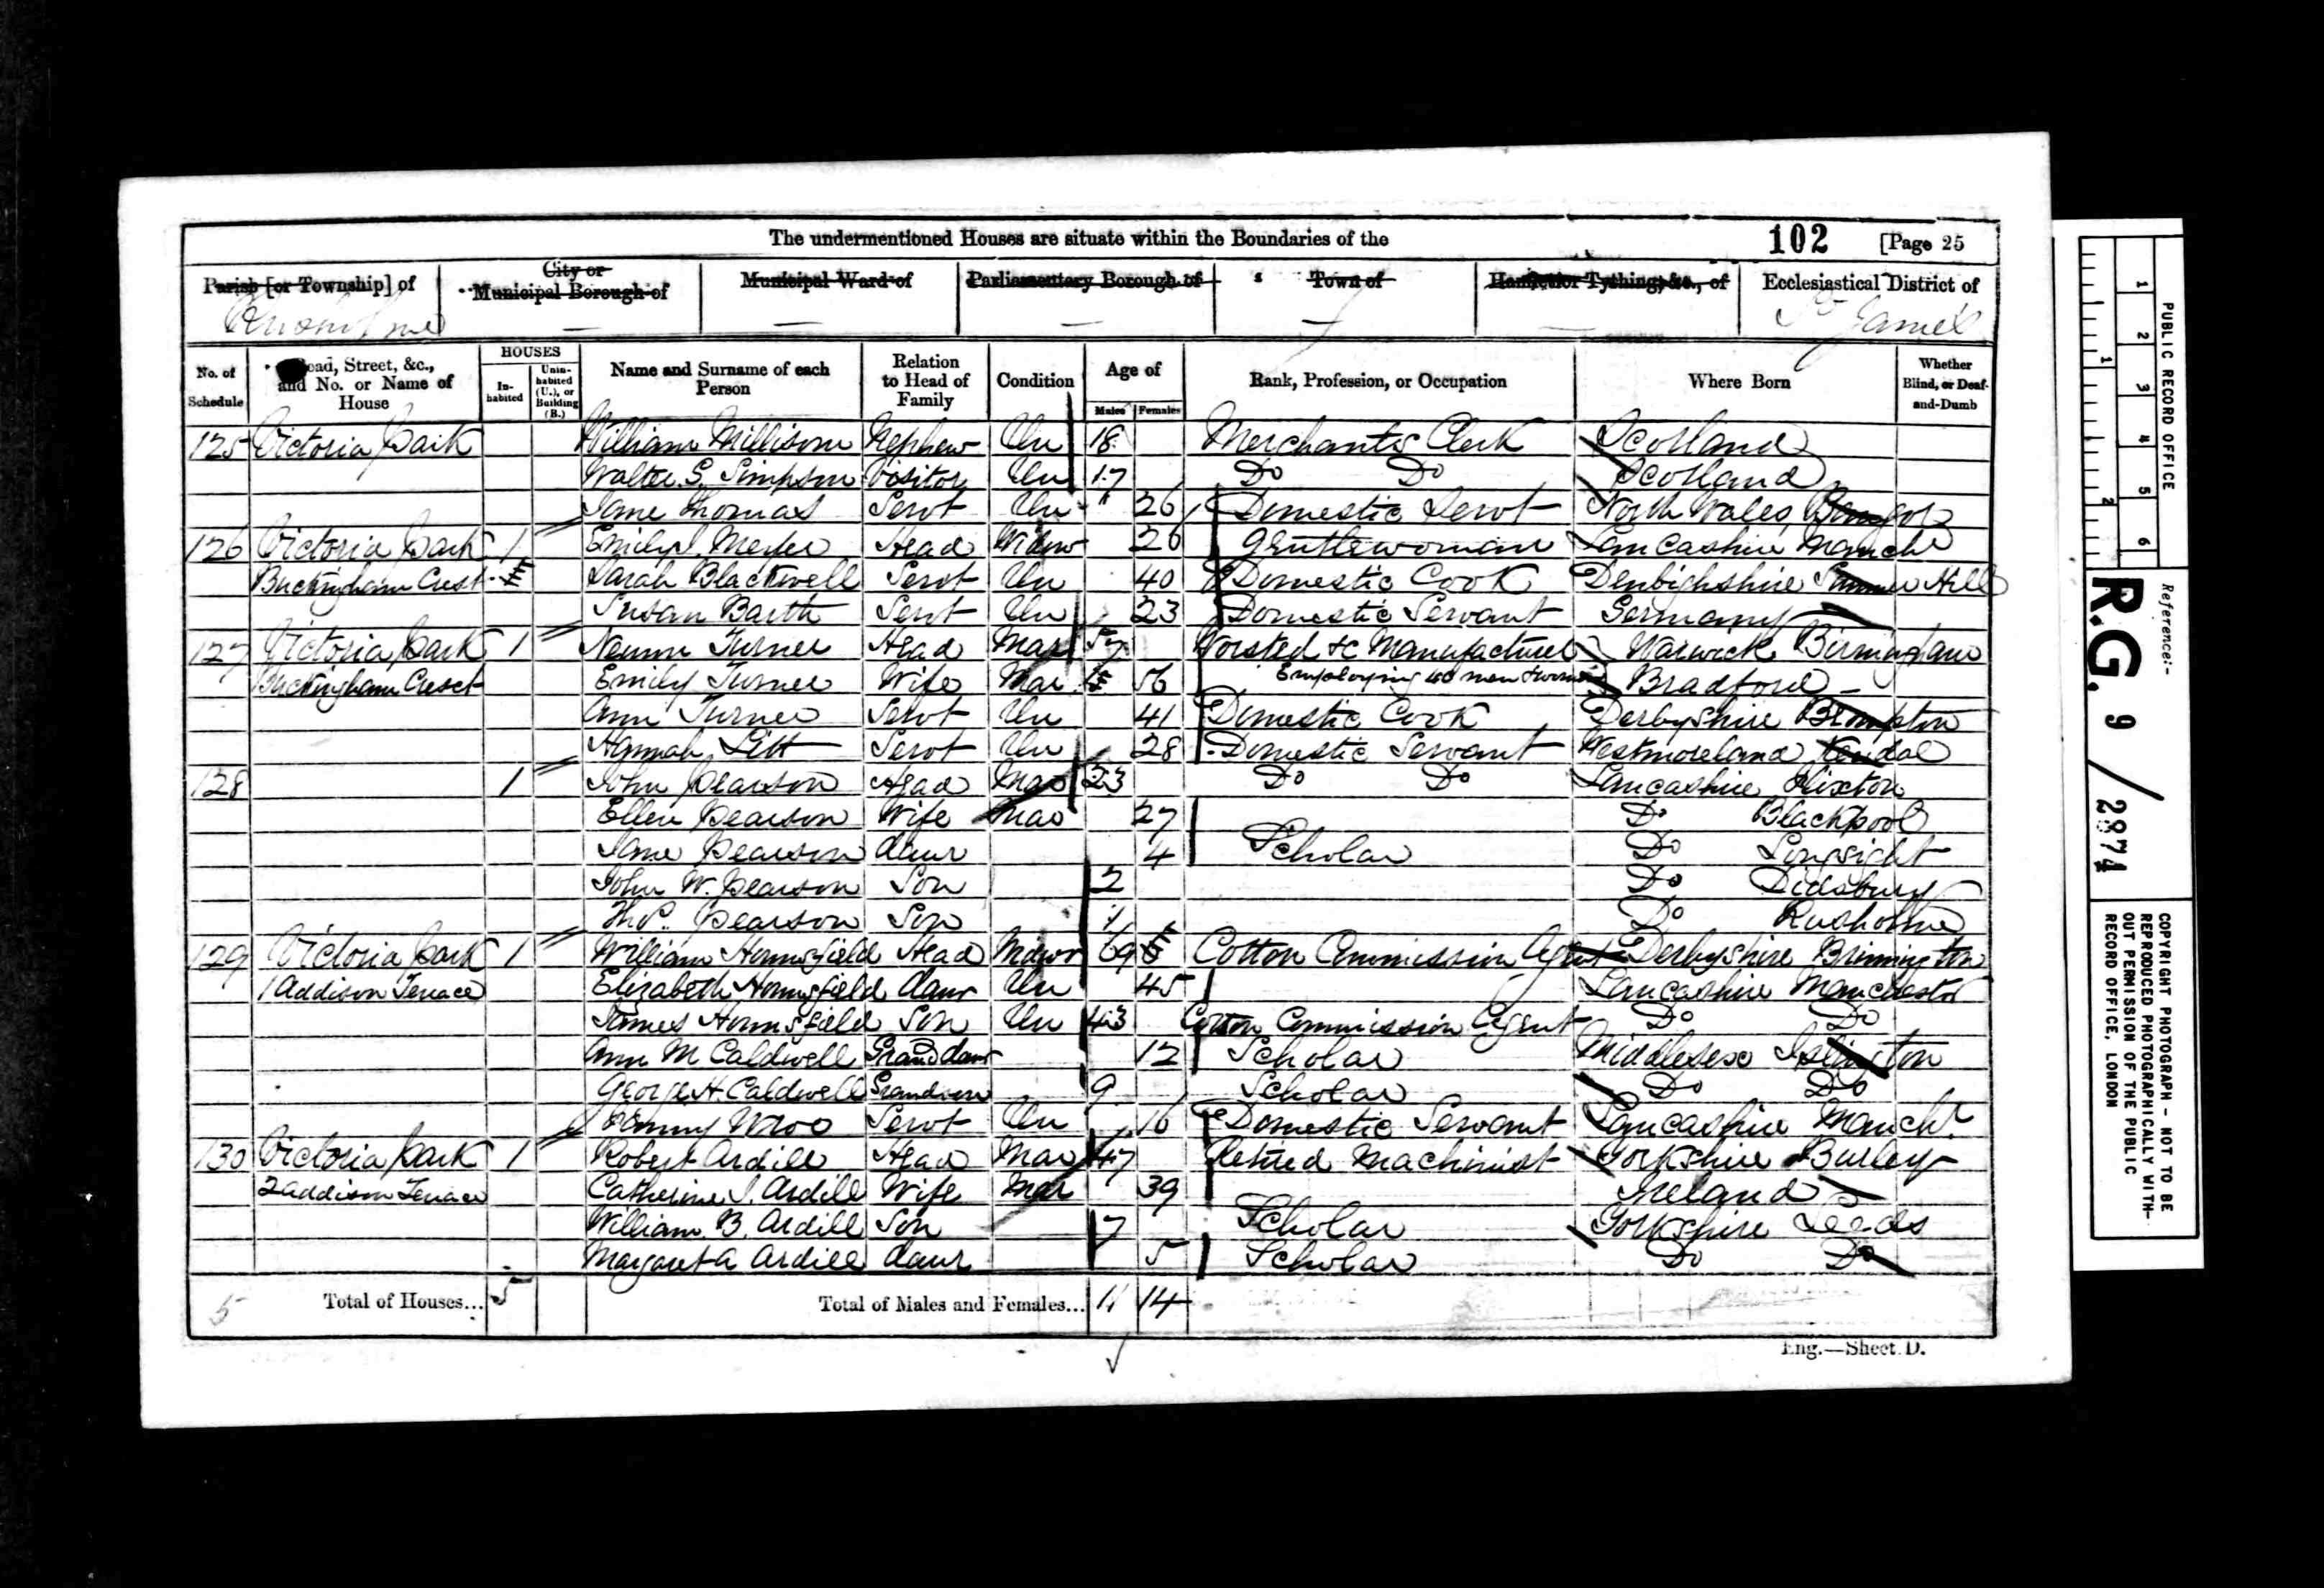 The undermentioned Houses are situate within the Boundaries of the 102 [Page 25
Parish [or Township] of City or Municipal Borough of Municipal Ward of Parliamentary Borough of Town of Hamlet or Tything, &c., of Ecclesiastical District of
Rusholme St James
No. of Schedule Road, Street, &c., and No. or Name of House HOUSES Inhabited Uninhabited (U.), or Building (B.) Name and Surname of each Person Relation to Head of Family Condition Age of Males Females Rank, Profession, or Occupation Where Born Whether Blind, or Deaf-and-Dumb
125 Victoria Park William Millison Nephew Un 18 Merchants Clerk Scotland
Walter S. Simpson Visitor Un 17 Do Do Scotland
Jane Thomas Servt Un 26 Domestic Servt North Wales Bangor
126 Victoria Park 1 Emily J. Meyer Head Widow 26 Gentlewoman Lancashire Manchr
Buckingham Crest Sarah Blackwell Servt Un 40 Domestic Cook Denbighshire Hill
Susan Barth Servt Un 23 Domestic Servant Germany
127 Victoria Park 1 Turner Head Mar 57 Worsted &c Manufacturer Warwick Birmingham
Buckingham Cresct Emily Turner Wife Mar 56 Employing 40 men & women Bradford
Ann Turner Servt Un 41 Domestic Cook Derbyshire Brampton
Hannah Litt Servt Un 28 Domestic Servant Westmoreland Kendal
128 1 John Pearson Head Mar 23 Do Do Lancashire Flixton
Ellen Pearson Wife Mar 27 Do Blackpool
Jane Pearson daur 4 Scholar Do Longsight
John W. Pearson Son 2 Do Didsbury
Thos. Pearson Son 1 Do Rusholme
129 Victoria Park 1 William Head Widowr 69 Cotton Commission Agent Derbyshire Brinnington
1 Addison Terrace Elizabeth daur Un 45 Lancashire Manchester
James Son Un 43 Cotton Commission Agent Do Do
Ann M Caldwell Grand daur 12 Scholar Middlesex Islington
George H. Caldwell Grandson 9 Scholar Do Do
Servt Un 16 Domestic Servant Lancashire Manchr
130 Victoria Park 1 Robert Ardill Head Mar 47 Retired Machinist Yorkshire Burley
2 Addison Terrace Catherine J. Ardill Wife Mar 39 Ireland
William B. Ardill Son 7 Scholar Yorkshire Leeds
Margaret A Ardill daur 5 Scholar Do Do
5 Total of Houses... 5 Total of Males and Females... 11 14
Eng.—Sheet D.
PUBLIC RECORD OFFICE
1 2 3 4 5 6
1 2
Reference:-
R.G. 9 / 2874
COPYRIGHT PHOTOGRAPH - NOT TO BE
REPRODUCED PHOTOGRAPHICALLY WITH-
OUT PERMISSION OF THE PUBLIC
RECORD OFFICE, LONDON